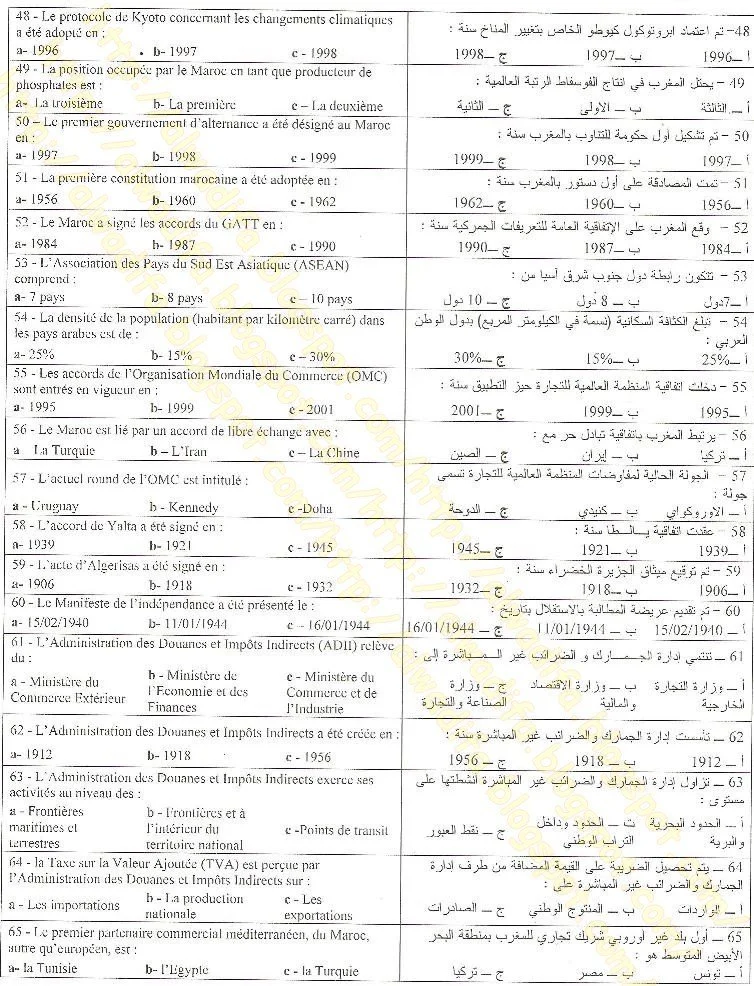 48 - Le protocole de Kyoto concernant les changements climatiques
a été adopté en :
a- 1996 b- 1997 c - 1998
48- تم اعتماد ابروتوكول كيوطو الخاص بتغيير المناخ سنة :
أ ـ 1996 ب ـ 1997 ج ـ 1998
49 - La position occupée par le Maroc en tant que producteur de
phosphates est :
a- La troisième b- La première c – La deuxième
49 - يحتل المغرب في انتاج الفوسفاط الرتبة العالمية :
أ ـ الثالثة ب ـ الاولى ج ـ الثانية
50 – Le premier gouvernement d'alternance a été désigné au Maroc
en :
a- 1997 b- 1998 c - 1999
50 - تم تشكيل أول حكومة للتناوب بالمغرب سنة :
أ ـ 1997 ب ـ 1998 ج ـ 1999
51 - La première constitution marocaine a été adoptée en :
a- 1956 b- 1960 c - 1962
51 - تمت المصادقة على أول دستور بالمغرب سنة :
أ ـ 1956 ب ـ 1960 ج ـ 1962
52 - Le Maroc a signé les accords du GATT en :
a- 1984 b- 1987 c - 1990
52 - وقع المغرب على الإتفاقية العامة للتعريفات الجمركية سنة :
أ ـ 1984 ب ـ 1987 ج ـ 1990
53 - L'Association des Pays du Sud Est Asiatique (ASEAN)
comprend :
a- 7 pays b- 8 pays c – 10 pays
53 - تتكون رابطة دول جنوب شرق أسيا من :
أ ـ 7دول ب ـ 8 دول ج ـ 10 دول
54 - La densité de la population (habitant par kilomètre carré) dans
les pays arabes est de :
a- 25% b- 15% c – 30%
54 - تبلغ الكثافة السكانية (نسمة في الكيلومتر المربع) بدول الوطن
العربي :
أ ـ 25% ب ـ 15% ج ـ 30%
55 - Les accords de l'Organisation Mondiale du Commerce (OMC)
sont entrés en vigueur en :
a- 1995 b- 1999 c - 2001
55 - دخلت اتفاقية المنظمة العالمية للتجارة حيز التطبيق سنة :
أ ـ 1995 ب ـ 1999 ج ـ 2001
56 - Le Maroc est lié par un accord de libre échange avec :
a La Turquie b – L'Iran c – La Chine
56 - يرتبط المغرب باتفاقية تبادل حر مع :
أ ـ تركيا ب ـ إيران ج ـ الصين
57 - L'actuel round de l'OMC est intitulé :
a - Uruguay b - Kennedy c -Doha
57 - الجولة الحالية لمفاوضات المنظمة العالمية للتجارة تسمى
جولة :
أ ـ الاوروكواي ب ـ كنيدي ج ـ الدوحة
58 - L'accord de Yalta a été signé en :
a- 1939 b- 1921 c - 1945
58 - عقدت اتفاقية يـــالـطا سنة :
أ ـ 1939 ب ـ 1921 ج ـ 1945
59 - L'acte d'Algerisas a été signé en :
a- 1906 b- 1918 c - 1932
59 - تم توقيع ميثاق الجزيرة الخضراء سنة :
أ ـ 1906 ب ـ 1918 ج ـ 1932
60 - Le Manifeste de l'indépendance a été présenté le :
a- 15/02/1940 b- 11/01/1944 c – 16/01/1944
60 - تم تقديم عريضة المطالبة بالاستقلال بتاريخ :
أ ـ 15/02/1940 ب ـ 11/01/1944 ج ـ 16/01/1944
61 - L'Administration des Douanes et Impôts Indirects (ADII) relève
du :
a - Ministère du b - Ministère de c - Ministère du
Commerce Extérieur l'Economie et des Commerce et de
Finances l'Industrie
61 ـ تنتمي إدارة الجمـــارك و الضرائب غير المـــباشرة إلى :
أ ـ وزارة التجارة ب ـ وزارة الاقتصاد ج ـ وزارة
الخارجية والمالية الصناعة والتجارة
62 - L'Administration des Douanes et Impôts Indirects a été créée en :
a- 1912 b- 1918 c - 1956
62 ـ تأسست إدارة الجمارك والضرائب غير المباشرة سنة :
أ ـ 1912 ب ـ 1918 ج ـ 1956
63 - L'Administration des Douanes et Impôts Indirects exerce ses
activités au niveau des :
a - Frontières b - Frontières et à
maritimes et l'intérieur du c -Points de transit
terrestres territoire national
63 ـ تزاول إدارة الجمارك والضرائب غير المباشرة أنشطتها على
مستوى :
أ ـ الحدود البحرية ت ـ الحدود وداخل ج ـ نقط العبور
والبرية التراب الوطني
64 - la Taxe sur la Valeur Ajoutée (TVA) est perçue par
l'Administration des Douanes et Impôts Indirects sur :
a - Les importations b - La production c - Les
nationale exportations
64 ـ يتم تحصيل الضريبة على القيمة المضافة من طرف إدارة
الجمارك والضرائب غير المباشرة على :
أ ـ الواردات ب ـ المنتوج الوطني ج ـ الصادرات
65 - Le premier partenaire commercial méditerranéen, du Maroc,
autre qu'européen, est :
a- la Tunisie b- l'Egypte c - la Turquie
65 ـ أول بلد غير أوروبي شريك تجاري للمغرب بمنطقة البحر
الأبيض المتوسط هو :
أ ـ تونس ب ـ مصر ج ـ تركيا